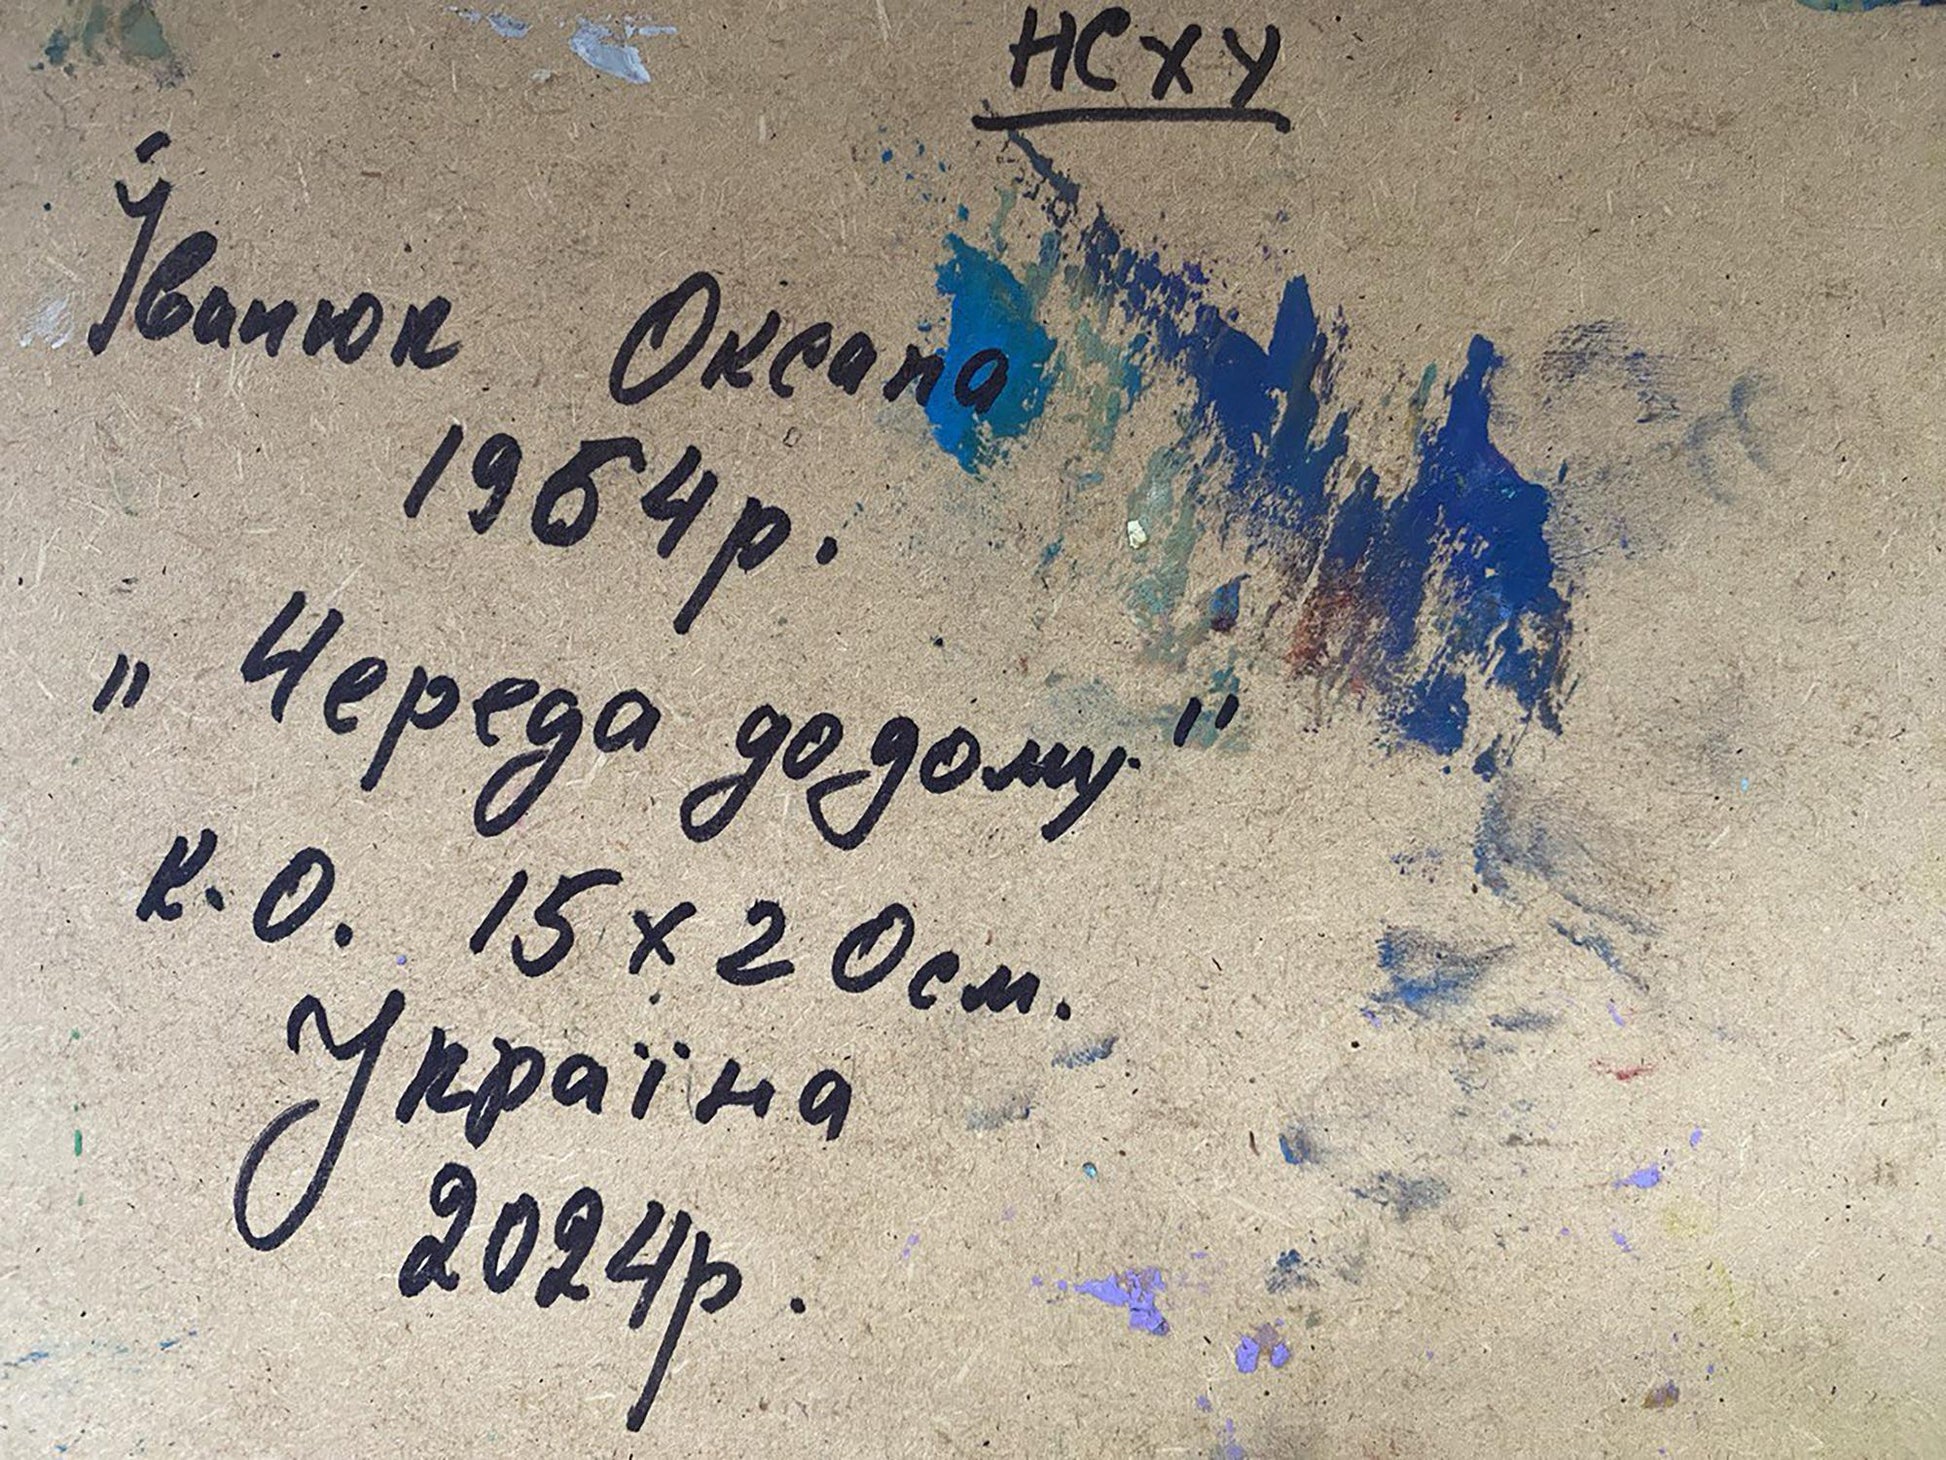 НСХУ
Іванюк Оксана
1964р.
„Череда додому"
К.О. 15х20см.
Україна
2024р.